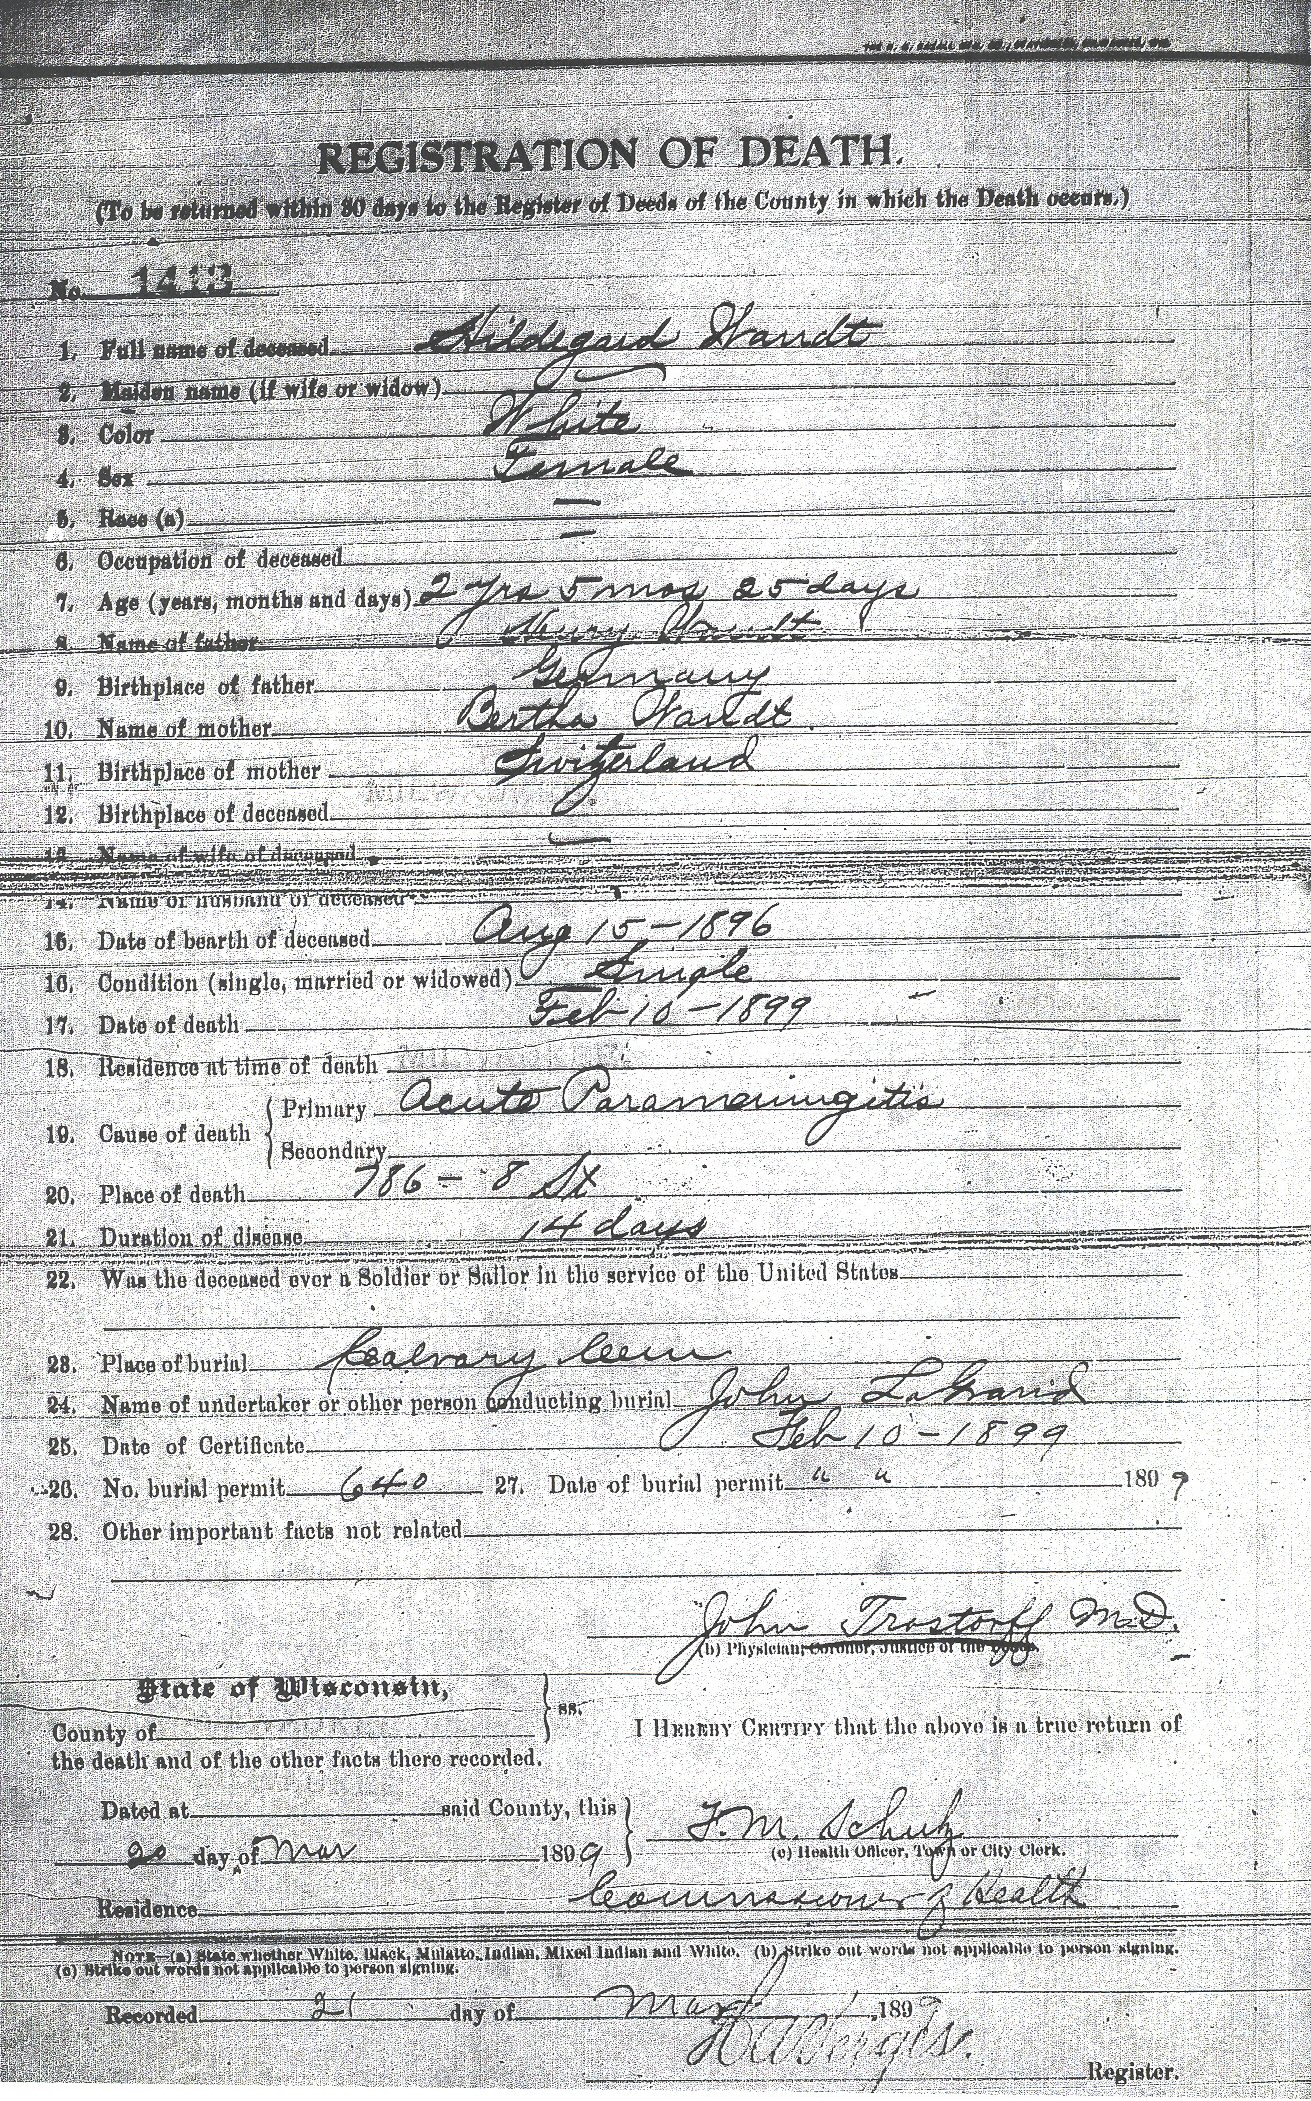 REGISTRATION OF DEATH.
(To be returned within 30 days to the Register of Deeds of the County in which the Death occurs.)
No. 1413
1. Full name of deceased Hildegard Wandt
2. Maiden name (if wife or widow) —
3. Color White
4. Sex Female
5. Race (a) —
6. Occupation of deceased —
7. Age (years, months and days) 2 yrs 5 mos 25 days
8. Name of father Henry Wandt
9. Birthplace of father Germany
10. Name of mother Bertha Wandt
11. Birthplace of mother Switzerland
12. Birthplace of deceased
13. Name of wife of deceased —
14. Name of husband of deceased
15. Date of bearth of deceased Aug 15 - 1896
16. Condition (single, married or widowed) Single
17. Date of death Feb 10 - 1899
18. Residence at time of death
19. Cause of death { Primary Acute Parameningitis
Secondary
20. Place of death 786 - 8 St
21. Duration of disease 14 days
22. Was the deceased ever a Soldier or Sailor in the service of the United States
23. Place of burial Calvary Cem
24. Name of undertaker or other person conducting burial John LaGrand
25. Date of Certificate Feb 10 - 1899
26. No. burial permit 640 27. Date of burial permit " " 1899
28. Other important facts not related
John Trostorff M.D.
(b) Physician, Coroner, Justice of the Peace.
State of Wisconsin, } ss.
County of
I HEREBY CERTIFY that the above is a true return of
the death and of the other facts there recorded.
Dated at said County, this }
20 day of Mar 1899
F. M. Schulz
(c) Health Officer, Town or City Clerk.
Residence Commissioner of Health
NOTE—(a) State whether White, Black, Mulatto, Indian, Mixed Indian and White. (b) Strike out words not applicable to person signing.
(c) Strike out words not applicable to person signing.
Recorded 21 day of Mar, 1899
Register.